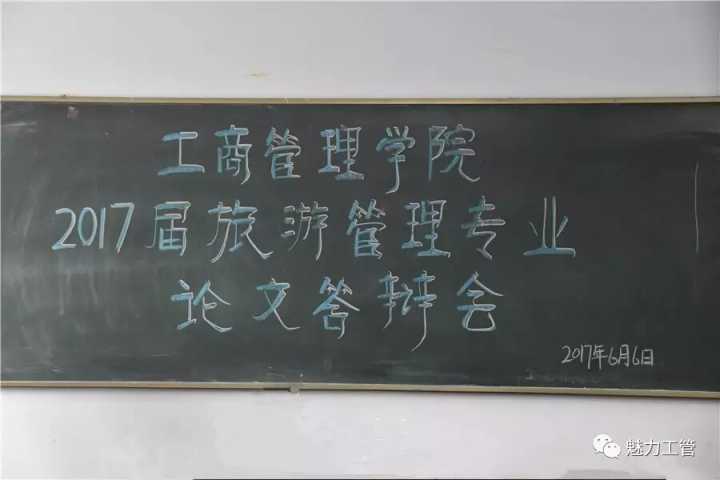 工商管理学院
2017届旅游管理专业
论文答辩会
2017年6月6日
魅力工管